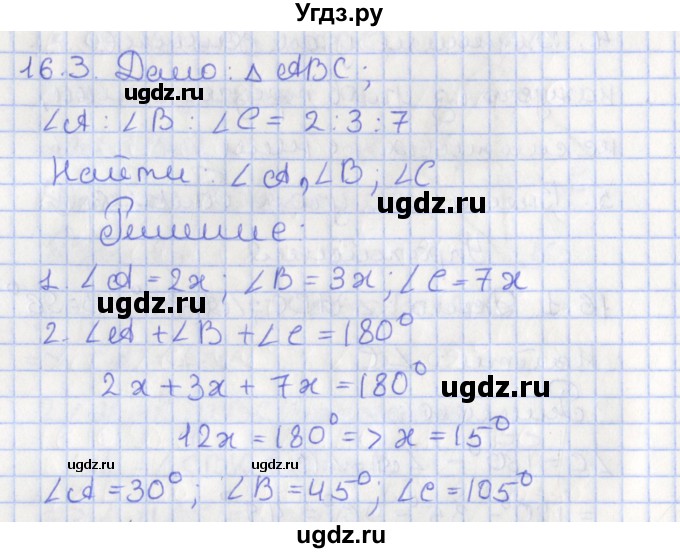 Угдз.ру
16.3. Дано: Δ ABC;
ugdz.ru
∠A : ∠B : ∠C = 2 : 3 : 7
Найти: ∠A, ∠B; ∠C
ugdz.ru
Решение:
1. ∠A = 2x; ∠B = 3x; ∠C = 7x
ugdz.ru
2. ∠A + ∠B + ∠C = 180°
2x + 3x + 7x = 180°
ugdz.ru
12x = 180° => x = 15°
ugdz.ru ugdz.ru
∠A = 30°; ∠B = 45°; ∠C = 105°
ugdz.ru